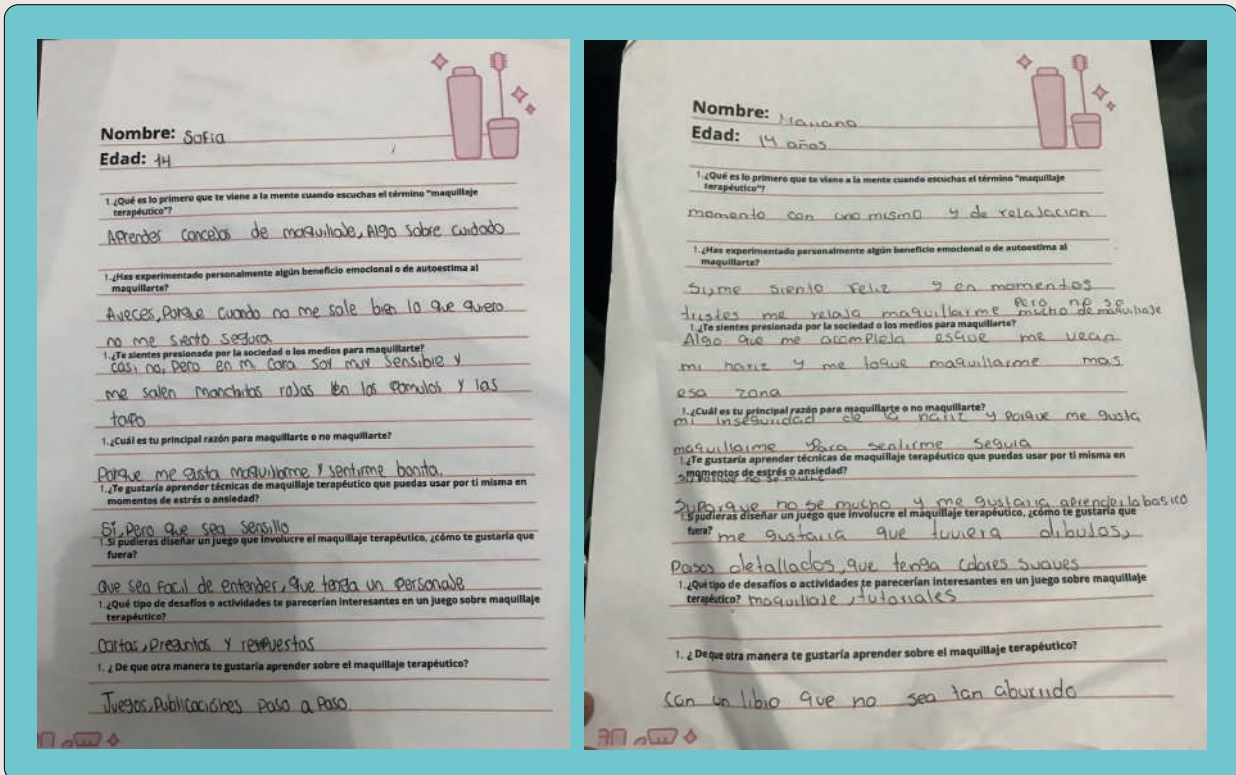 Nombre: Sofia
Edad: 14
1. ¿Qué es lo primero que te viene a la mente cuando escuchas el término "maquillaje
terapéutico"?
Aprendes concelos de maquillaje, Algo sobre cuidado
1. ¿Has experimentado personalmente algún beneficio emocional o de autoestima al
maquillarte?
Aveces, Porque cuando no me sale bien lo que quero
no me siento segura
1. ¿Te sientes presionada por la sociedad o los medios para maquillarte?
casi no, pero en mi cara soy muy sensible y
me salen manchitas rojas en los pomulos y las
tapo
1. ¿Cuál es tu principal razón para maquillarte o no maquillarte?
Porque me gusta maquillarme y sentirme bonita.
1. ¿Te gustaría aprender técnicas de maquillaje terapéutico que puedas usar por ti misma en
momentos de estrés o ansiedad?
Sí, pero que sea sensillo
1. Si pudieras diseñar un juego que involucre el maquillaje terapéutico, ¿cómo te gustaría que
fuera?
que sea facil de entender, que tenga un personaje
1. ¿Qué tipo de desafíos o actividades te parecerían interesantes en un juego sobre maquillaje
terapéutico?
Cartas, Preguntas y respuestas
1. ¿ De que otra manera te gustaría aprender sobre el maquillaje terapéutico?
Juegos, Publicaciónes paso a paso
Nombre: Mariana
Edad: 14 años
1. ¿Qué es lo primero que te viene a la mente cuando escuchas el término "maquillaje
terapéutico"?
momento con uno mismo y de relajacion
1. ¿Has experimentado personalmente algún beneficio emocional o de autoestima al
maquillarte?
Si, me siento feliz y en momentos
tristes me relaja maquillarme pero no se mucho de maquillaje
1. ¿Te sientes presionada por la sociedad o los medios para maquillarte?
Algo que me acompleja esque me vean
mi nariz y me toque maquillarme mas
esa zona
1. ¿Cuál es tu principal razón para maquillarte o no maquillarte?
mi inseguridad de la nariz y porque me gusta
maquillarme para sentirme segura
1. ¿Te gustaría aprender técnicas de maquillaje terapéutico que puedas usar por ti misma en
momentos de estrés o ansiedad?
Si porque no se mucho y me gustaria aprender lo basico
1. Si pudieras diseñar un juego que involucre el maquillaje terapéutico, ¿cómo te gustaría que
fuera? me gustaria que tuviera dibujos,
pasos detallados, que tenga colores suaves
1. ¿Qué tipo de desafíos o actividades te parecerían interesantes en un juego sobre maquillaje
terapéutico? maquillaje, tutoriales
1. ¿ De que otra manera te gustaría aprender sobre el maquillaje terapéutico?
con un libro que no sea tan aburrido